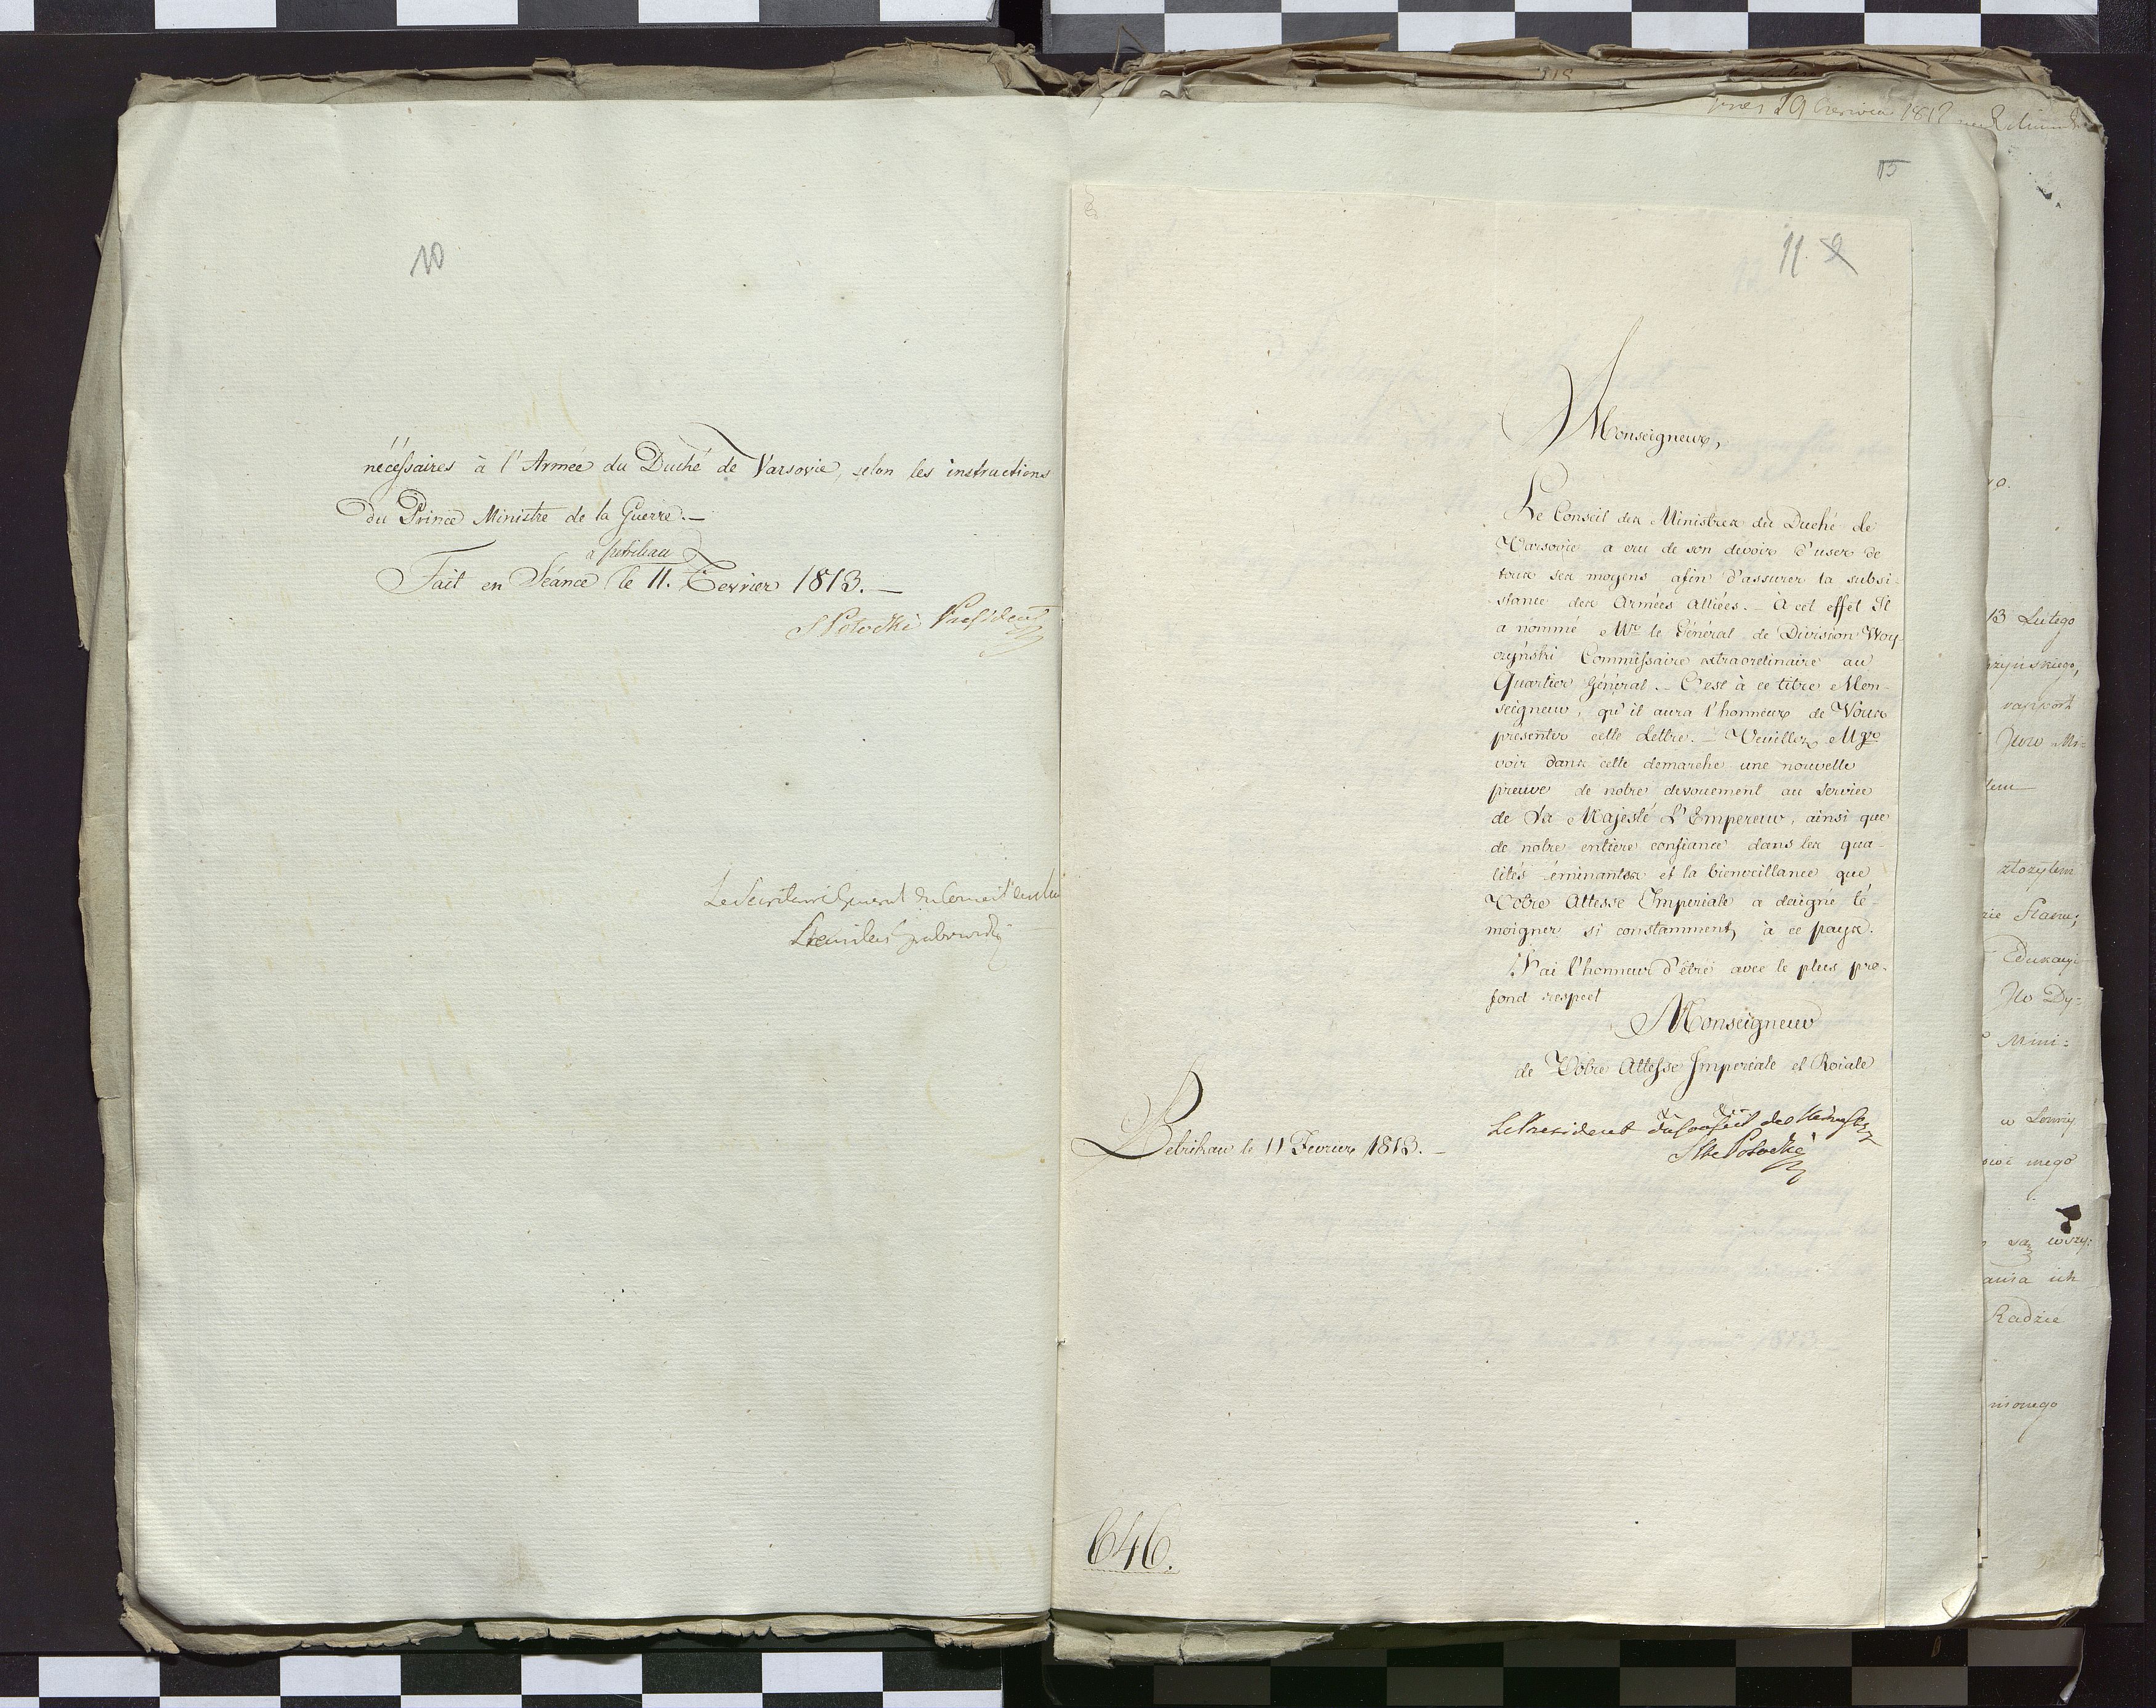 10
nécéssaires à l'Armée du Duché de Varsovie, selon les instructions
du Prince Ministre de la Guerre.—
a petrikau
Fait en Séance le 11. Fevrier 1813.—
S Potocki President
Le Secretaire General du Conseil des
Stanislas Grabowski
15
11. 9
Monseigneur,
Le Conseil des Ministres du Duché de
Varsovie a cru de son devoir d'user de
tous ses moyens afin d'assurer la subsi-
stance des Armées alliées.— À cet effet Il
a nommé Mr le Général de Division Woy-
czyński Commissaire extraordinaire au
Quartier Général.— C'est à ce titre Mon-
seigneur, qu'il aura l'honneur de Vous
presenter cette Lettre.— Veuillez Mgr
voir dans cette demarche une nouvelle
preuve de notre devouement au Service
de Sa Majesté L'Empereur, ainsi que
de notre entiere confiance dans les qua-
lités éminantes et la bienveillance que
Votre Altesse Imperiale a daigné té-
moigner si constamment, à ce pays.
J'ai l'honneur d'être avec le plus pro-
fond respect
Monseigneur
de Votre Altesse Imperiale et Roiale
Le President du Conseil des Ministres
Stke Potocki
Petrikau le 11 Fevrier 1813.—
646.
13 Lutego
rapport
Mi-
złozyłem
Edukacyi
Dy-
Mini:
są wszy:
ich
Radzie